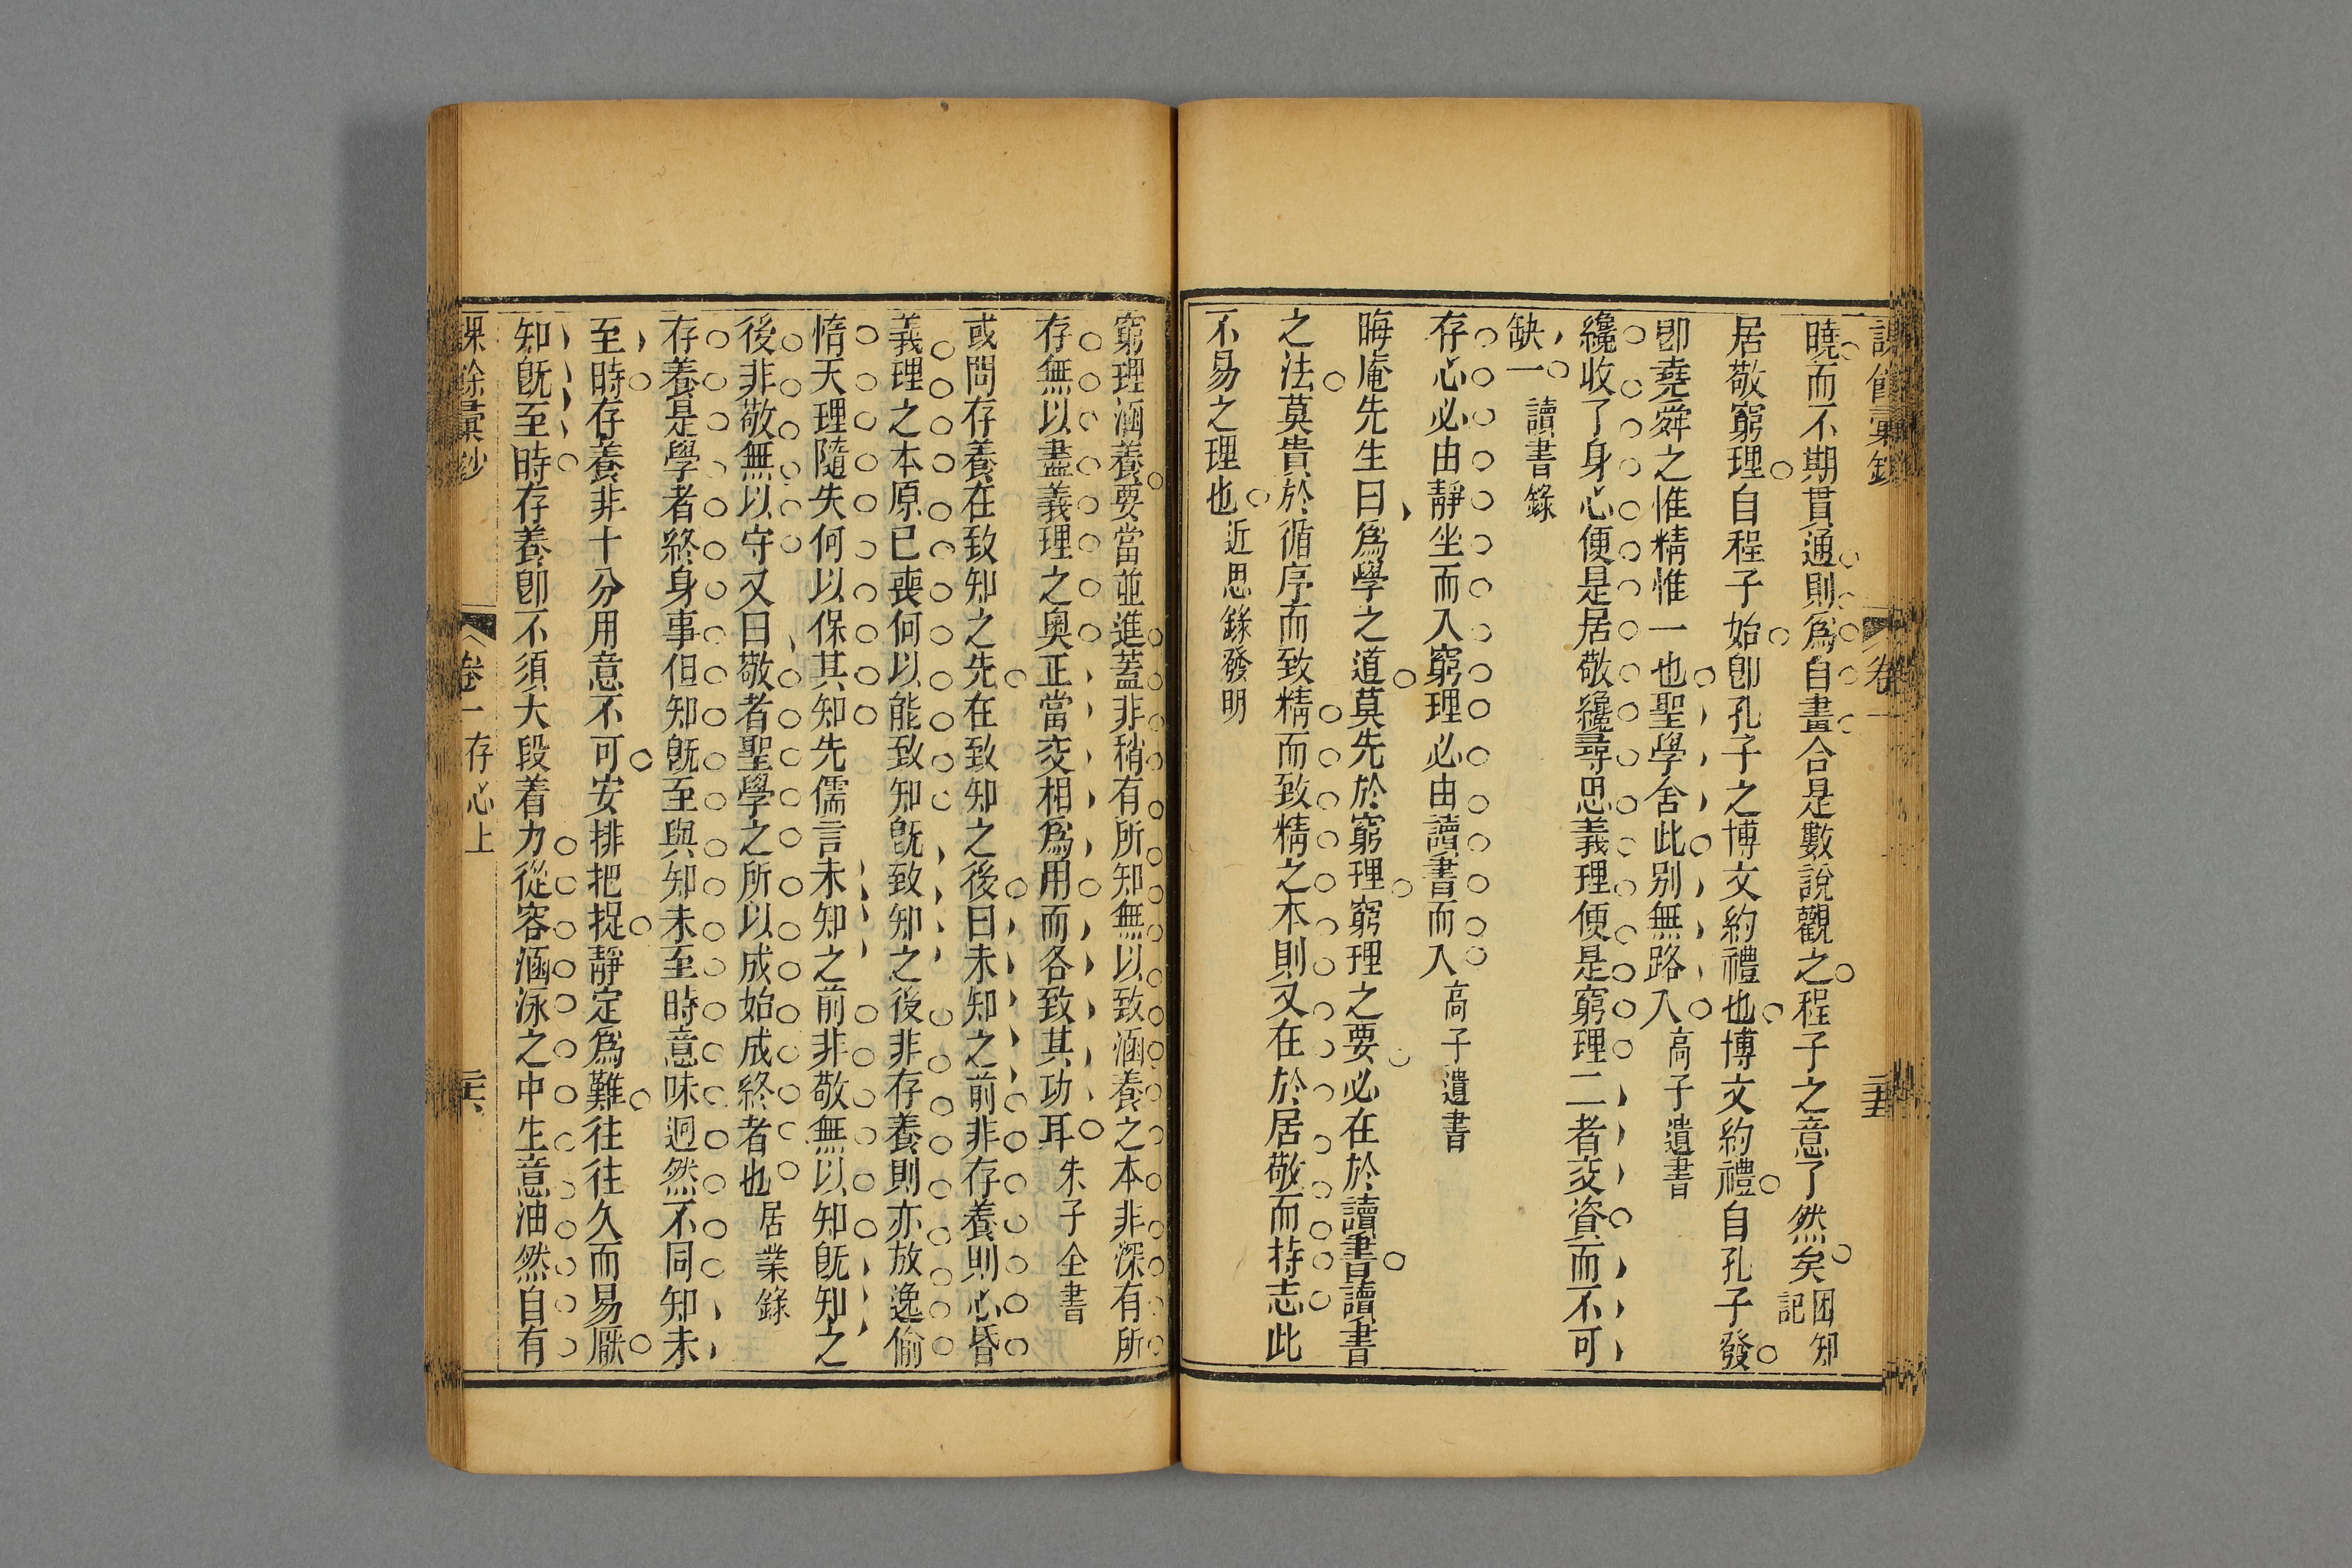 課餘彙鈔
卷一
二十五
曉而不期貫通則爲自畫合是數說觀之程子之意了然矣困知記
居敬窮理自程子始卽孔子之博文約禮也博文約禮自孔子發
卽堯舜之惟精惟一也聖學舍此別無路入高子遺書
纔收了身心便是居敬纔尋思義理便是窮理二者交資而不可
缺一讀書錄
存心必由靜坐而入窮理必由讀書而入高子遺書
晦庵先生曰爲學之道莫先於窮理窮理之要必在於讀書讀書
之法莫貴於循序而致精而致精之本則又在於居敬而持志此
不易之理也近思錄發明
窮理涵養要當並進蓋非稍有所知無以致涵養之本非深有所
存無以盡義理之奧正當交相爲用而各致其功耳朱子全書
或問存養在致知之先在致知之後曰未知之前非存養則心昏
義理之本原已喪何以能致知旣致知之後非存養則亦放逸偷
惰天理隨失何以保其知先儒言未知之前非敬無以知旣知之
後非敬無以守又曰敬者聖學之所以成始成終者也居業錄
存養是學者終身事但知旣至與知未至時意味迥然不同知未
至時存養非十分用意不可安排把捉靜定爲難往往久而易厭
知旣至時存養卽不須大段着力從容涵泳之中生意油然自有
課餘彙鈔
卷一存心上
二十六